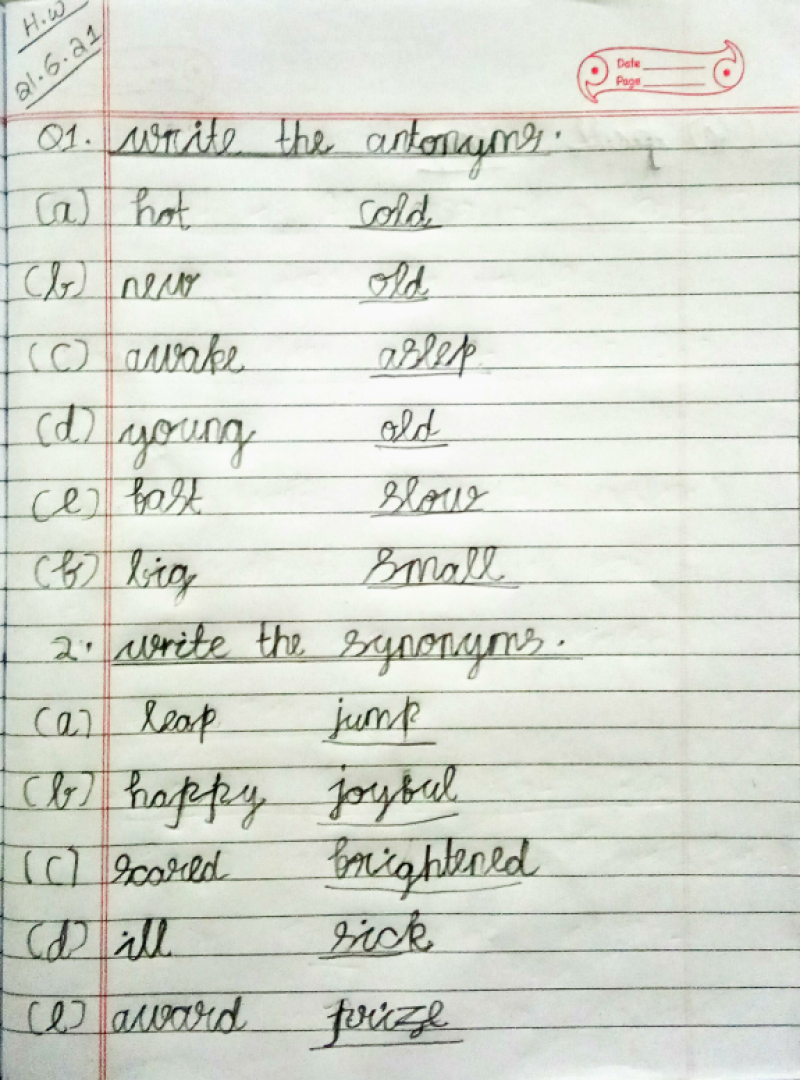 H.W
21.6.21
Date
Page
Q1. write the antonyms.
(a) hot cold
(b) new old
(c) awake aslep
(d) young old
(e) fast slow
(f) big small
2. write the synonyms.
(a) leap jump
(b) happy joyful
(c) scared frightened
(d) ill sick
(e) award prize